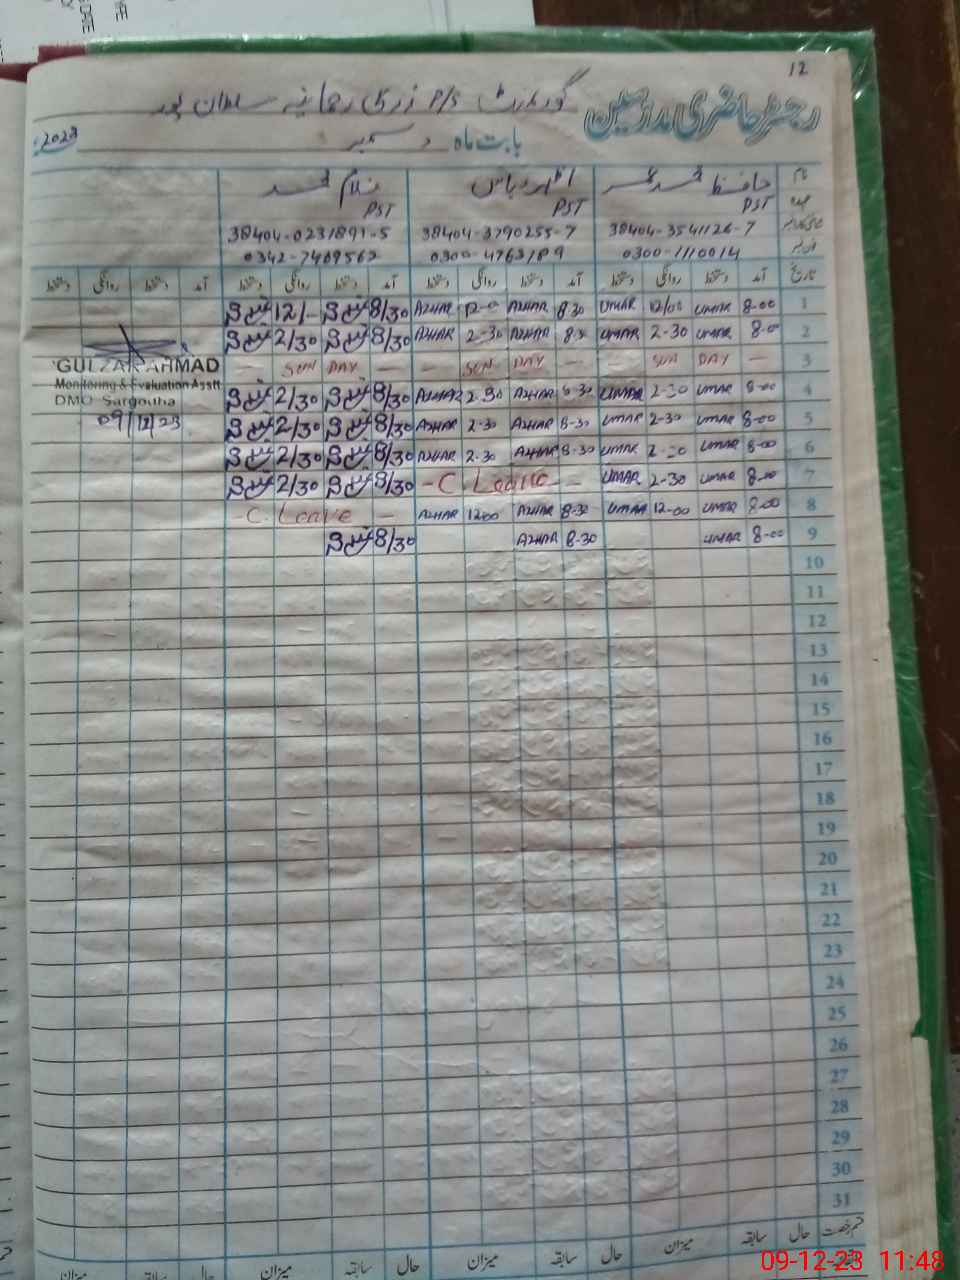 12
رجسٹر حاضری مدرسین گورنمنٹ P/S رحمانیہ سلطان پور
بابت ماہ دسمبر 2023
نام حافظ محمد عمر اظہر عباس غلام محمد
عہدہ PST PST PST
38404-3541126-7 38404-3790255-7 38404-0231891-5
0300-1110014 0300-4763189 0342-7409562
تاریخ آمد دستخط روانگی دستخط آمد دستخط روانگی دستخط آمد دستخط روانگی دستخط آمد دستخط روانگی دستخط
1 8-00 UMAR 12/00 UMAR 8-30 AZHAR 12-0 AZHAR 8/30 12/-
2 8-0 UMAR 2-30 UMAR 8-30 AZHAR 2-30 AZHAR 8/30 2/30
3 — SUN DAY — — SUN DAY — — SUN DAY —
4 8-00 UMAR 2-30 UMAR 8-30 AZHAR 2-30 AZHAR 8/30 2/30
5 8-00 UMAR 2-30 UMAR 8-30 AZHAR 2-30 AZHAR 8/30 2/30
6 8-00 UMAR 2-30 UMAR 8-30 AZHAR 2-30 AZHAR 8/30 2/30
7 8-00 UMAR 2-30 UMAR — C. Leave — 8/30 2/30
8 8-00 UMAR 12-00 UMAR 8-30 AZHAR 12-00 AZHAR — C. Leave —
9 8-00 UMAR 8-30 AZHAR 8/30
GULZAR AHMAD
Monitoring & Evaluation Asstt
DMO Sargodha
09/12/23
10
11
12
13
14
15
16
17
18
19
20
21
22
23
24
25
26
27
28
29
30
31
قسم رخصت حال سابقہ میزان حال سابقہ میزان حال سابقہ میزان حال سابقہ میزان
09-12-23 11:48